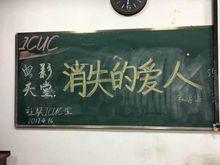 ICUC
电影
天堂
消失的爱人
社联ICUC宣
2017.4.16